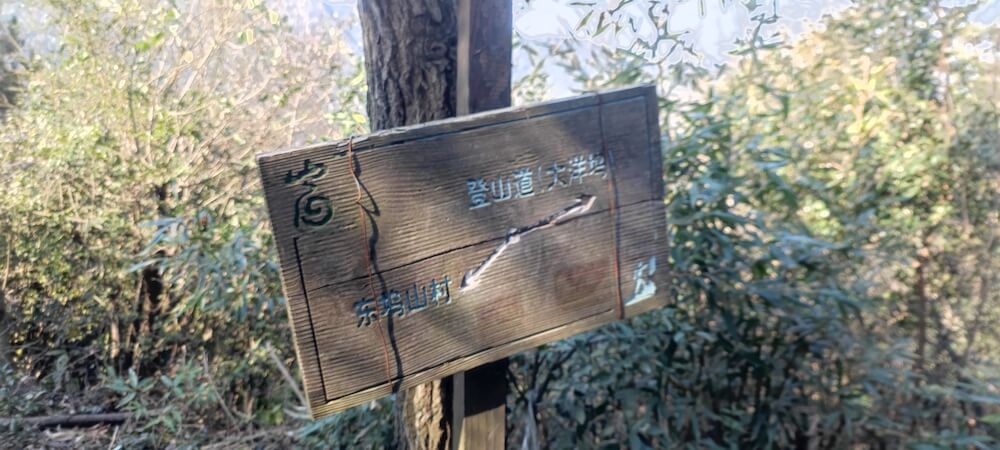 登山道(大洋坞)
东坞山村